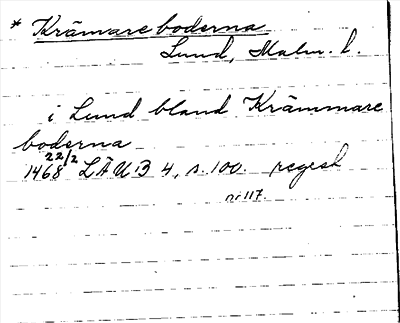 * Krämareboderna
Lund, Malm. l.
i Lund bland Krämmare
boderna
22/2
1468 LÄUB 4, s. 100. regest
nr 117.